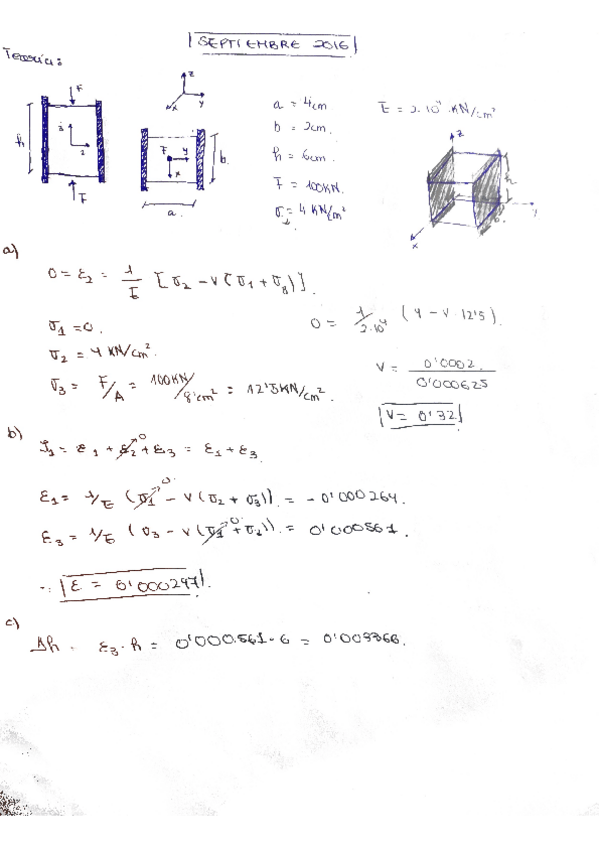 SEPTIEMBRE 2016
Teoría:
F
h
3
2
F
z
x
y
F
y
x
b
a
a = 4cm
b = 2cm.
h = 6cm.
F = 100KN.
σ = 4 KN/cm²
E = 2·10⁴ KN/cm²
z
h
y
x
a)
0 = ε2 = 1/E [σ2 - ν(σ1 + σ3)].
σ1 = 0.
σ2 = 4 KN/cm².
σ3 = F/A = 100KN/8cm² = 12'5KN/cm².
0 = 1/2·10⁴ (4 - ν·12'5).
ν = 0'0002/0'000625
ν = 0'32
b)
J1 = ε1 + ε2 + ε3 = ε1 + ε3.
0
ε1 = 1/E (σ1 - ν(σ2 + σ3)) = -0'000264.
0
ε3 = 1/E (σ3 - ν(σ1 + σ2)) = 0'000561.
0
∴ ε = 0'000297.
c)
Δh = ε3·h = 0'000561·6 = 0'003366.